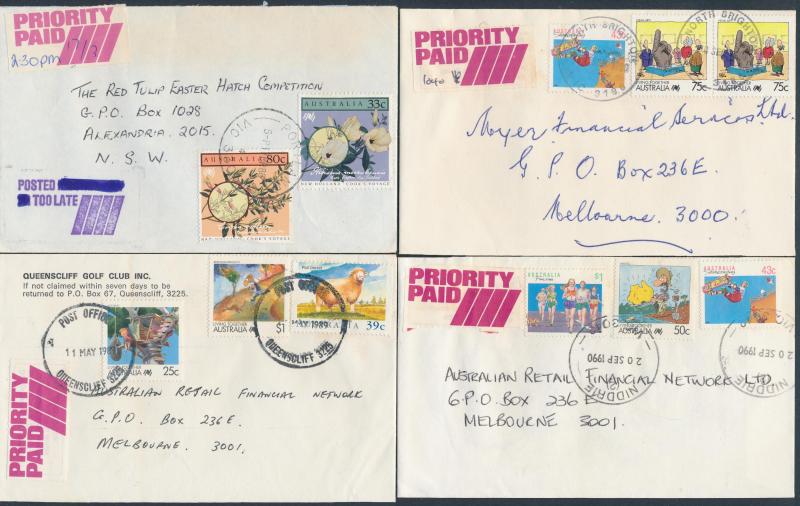 PRIORITY
PAID
2:30pm 17/3
THE RED TULIP EASTER HATCH COMPETITION
G.P.O. BOX 1028
ALEXANDRIA. 2015.
N. S. W.
AUSTRALIA
33c
NEW HOLLAND - COOK'S VOYAGE
AUSTRALIA
80c
NEW HOLLAND - COOK'S VOYAGE
VIC
POSTED
TOO LATE
PRIORITY
PAID
AUSTRALIA
43c
LIVING TOGETHER
AUSTRALIA 75c
LIVING TOGETHER
AUSTRALIA 75c
NORTH BRIGHTON
Myer Financial Services Ltd.
G. P. O. Box 236E.
Melbourne. 3000.
QUEENSCLIFF GOLF CLUB INC.
If not claimed within seven days to be
returned to P.O. Box 67, Queenscliff, 3225.
LIVING TOGETHER
AUSTRALIA $1
Poll Dorset
39c
25c
POST OFFICE
11 MAY 1989
QUEENSCLIFF 3225
MAY 1989
QUEENSCLIFF 3225
PRIORITY
PAID
AUSTRALIAN RETAIL FINANCIAL NETWORK
G.P.O. BOX 236E.
MELBOURNE. 3001.
PRIORITY
PAID
AUSTRALIA
$1
LIVING TOGETHER
AUSTRALIA 50c
AUSTRALIA
43c
NIDDRIE
20 SEP 1990
NIDDRIE
20 SEP 1990
AUSTRALIAN RETAIL FINANCIAL NETWORK LTD
G.P.O. BOX 236 E
MELBOURNE 3001.